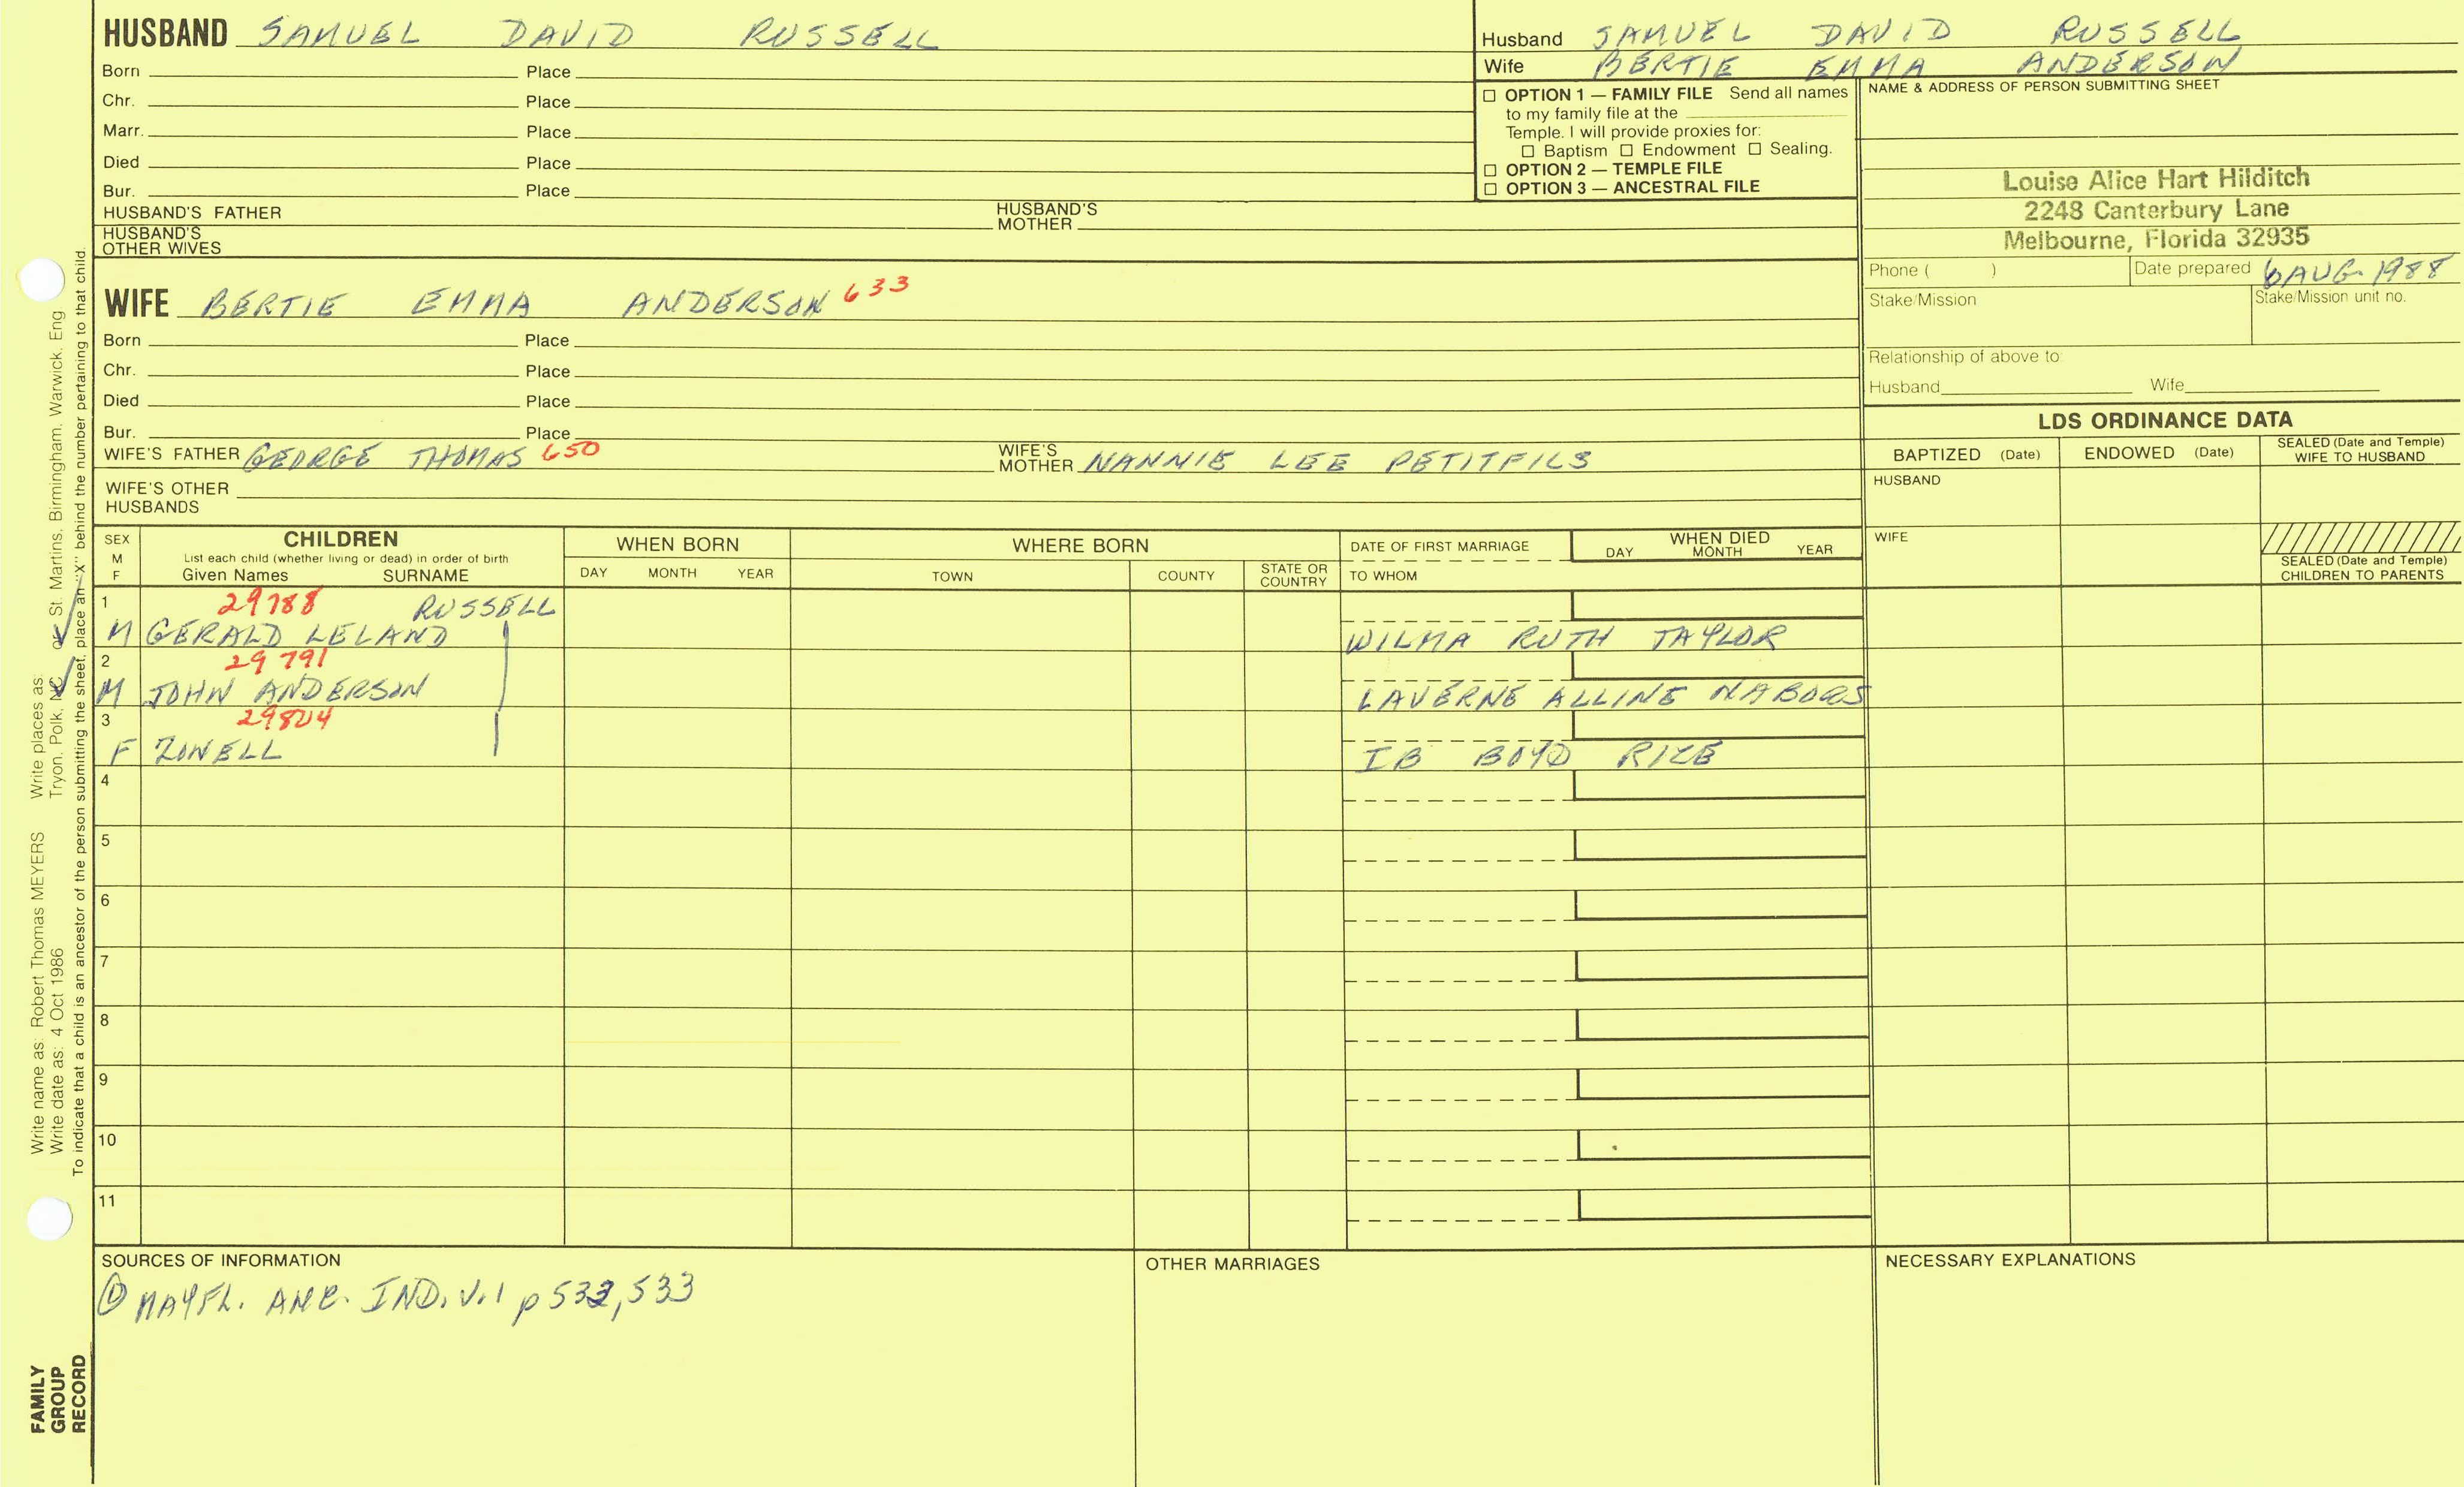 HUSBAND SAMUEL DAVID RUSSELL
Born Place
Chr. Place
Marr. Place
Died Place
Bur. Place
HUSBAND'S FATHER HUSBAND'S MOTHER
HUSBAND'S OTHER WIVES
Husband SAMUEL DAVID RUSSELL
Wife BERTIE EMMA ANDERSON
☐ OPTION 1 — FAMILY FILE Send all names
to my family file at the
Temple. I will provide proxies for:
☐ Baptism ☐ Endowment ☐ Sealing.
☐ OPTION 2 — TEMPLE FILE
☐ OPTION 3 — ANCESTRAL FILE
NAME & ADDRESS OF PERSON SUBMITTING SHEET
Louise Alice Hart Hilditch
2248 Canterbury Lane
Melbourne, Florida 32935
Phone ( ) Date prepared 6 AUG. 1988
Stake/Mission Stake/Mission unit no.
Relationship of above to:
Husband Wife
WIFE BERTIE EMMA ANDERSON 633
Born Place
Chr. Place
Died Place
Bur. Place
WIFE'S FATHER GEORGE THOMAS 650 WIFE'S MOTHER NANNIE LEE PETITFILS
WIFE'S OTHER
HUSBANDS
LDS ORDINANCE DATA
BAPTIZED (Date) ENDOWED (Date) SEALED (Date and Temple) WIFE TO HUSBAND
HUSBAND
WIFE
SEALED (Date and Temple)
CHILDREN TO PARENTS
SEX M F
CHILDREN
List each child (whether living or dead) in order of birth
Given Names SURNAME
WHEN BORN
DAY MONTH YEAR
WHERE BORN
TOWN COUNTY STATE OR COUNTRY
DATE OF FIRST MARRIAGE
TO WHOM
WHEN DIED
DAY MONTH YEAR
1 29788 RUSSELL
M GERALD LELAND WILMA RUTH TAYLOR
2 29791
M JOHN ANDERSON LAVERNE ALLINE NABORS
3 29804
F ZONELL IB BOYD RIZE
4
5
6
7
8
9
10
11
SOURCES OF INFORMATION
① MAYFL. ANC. IND. V.1 p 532, 533
OTHER MARRIAGES
NECESSARY EXPLANATIONS
Write name as: Robert Thomas MEYERS Write places as: Tryon, Polk, NC or St. Martins, Birmingham, Warwick, Eng
Write date as: 4 Oct 1986
To indicate that a child is an ancestor of the person submitting the sheet, place an "X" behind the number pertaining to that child.
FAMILY
GROUP
RECORD